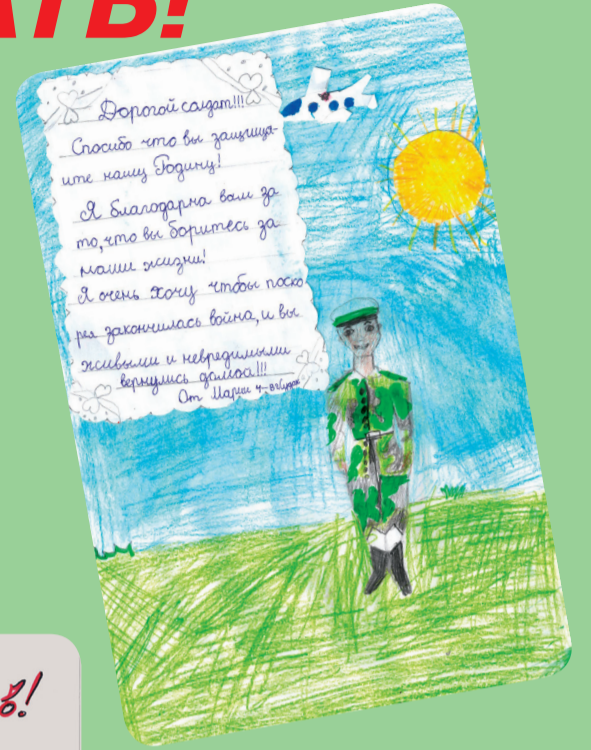 АТЬ!
Дорогой солдат!!!
Спосибо что вы защища-
ите нашу Родину!
Я благодарна вам за
то, что вы боритесь за
наши жизни!
Я очень хочу чтобы поско
рея закончилась война, и вы
живыми и невредимыми
вернулись домой!!!
От Марии